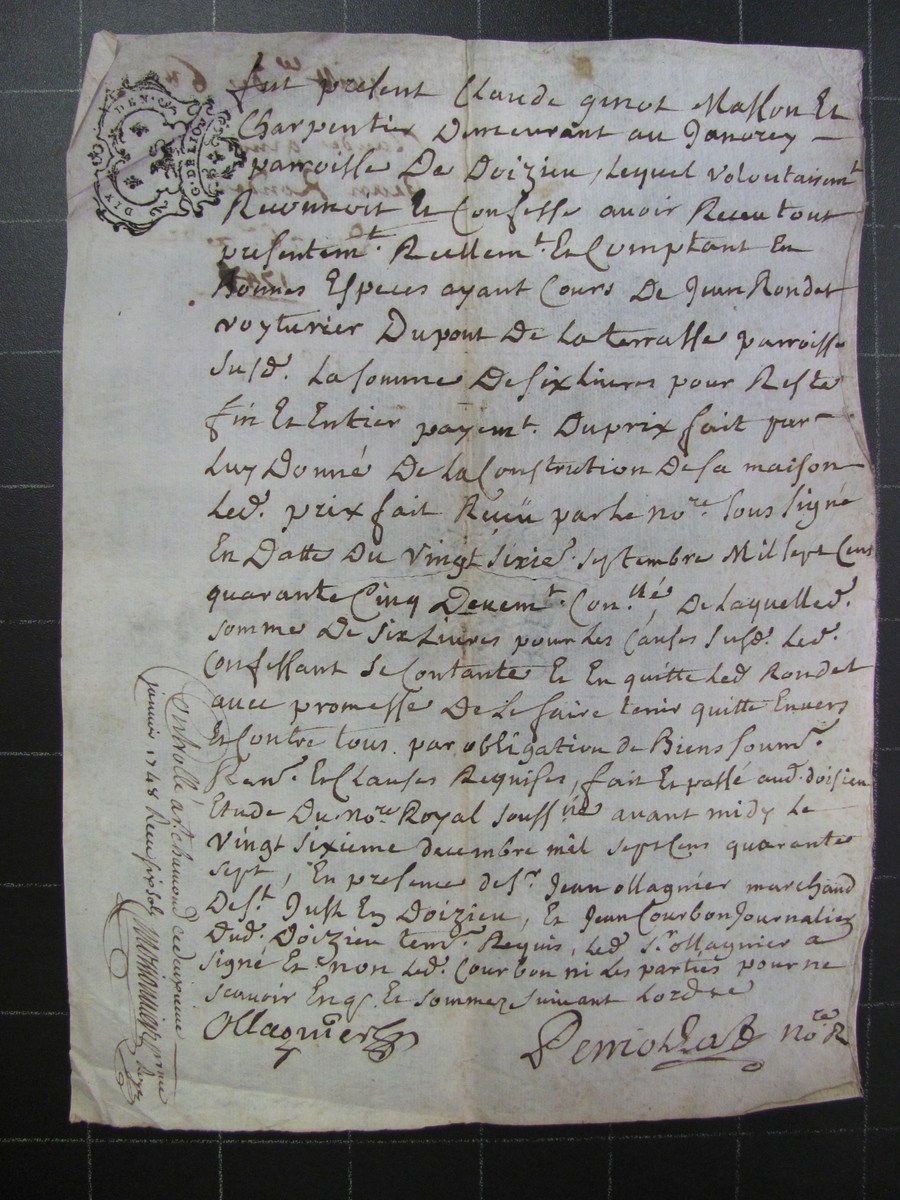 DEUX SOLS
G. DE LION
fut présent Claude ginot Masson Et
Charpentier Demeurant au Janorey —
parroisse De Doizieu, lequel volontairemt.
Reconnoit Et Confesse avoir Receu tout
presentemt. Reellemt. Et Comptant En
Bonnes Especes ayant Cours De Jean Rondet
voyturier Dupont De La terrasse parroisse
susd. La somme De six Livres pour Reste
fin Et Entier payemt. Du prix fait par
Luy Donné De La Construction De sa maison
Led. prix fait Receü par Le nore. sous signé
En Datte Du vingt sixie. septembre Mil sept Cens
quarante Cinq Devemt. Conllé, De Laquelled.
somme De six Livres pour Les Causes susd. Led.
Confessant se Contante Et En quitte Led Rondet
avec promesse De Le faire tenir quitte Envers
Et Contre tous. par obligation de Biens soumn.
Renn. Et Clauses Requises, fait Et passé aud. doisieu
Etude Du nore Royal soussné avant midy Le
vingt sixieme decembre mil sept Cens quarante
sept, En presence de sr. Jean ollagnier marchand
De st. Just En Doizieu, Et Jean Courbon Journalier
Dud. Doizieu temn. Requis, Led sr ollagnier a
signé Et non Led. Courbon ni Les parties pour ne
scavoir Enq. Et sommez suivant Lordce
Ollagnier
nore. R
Controllé a st. chamond ce deuxieme
janvier 1748 Receu six sols